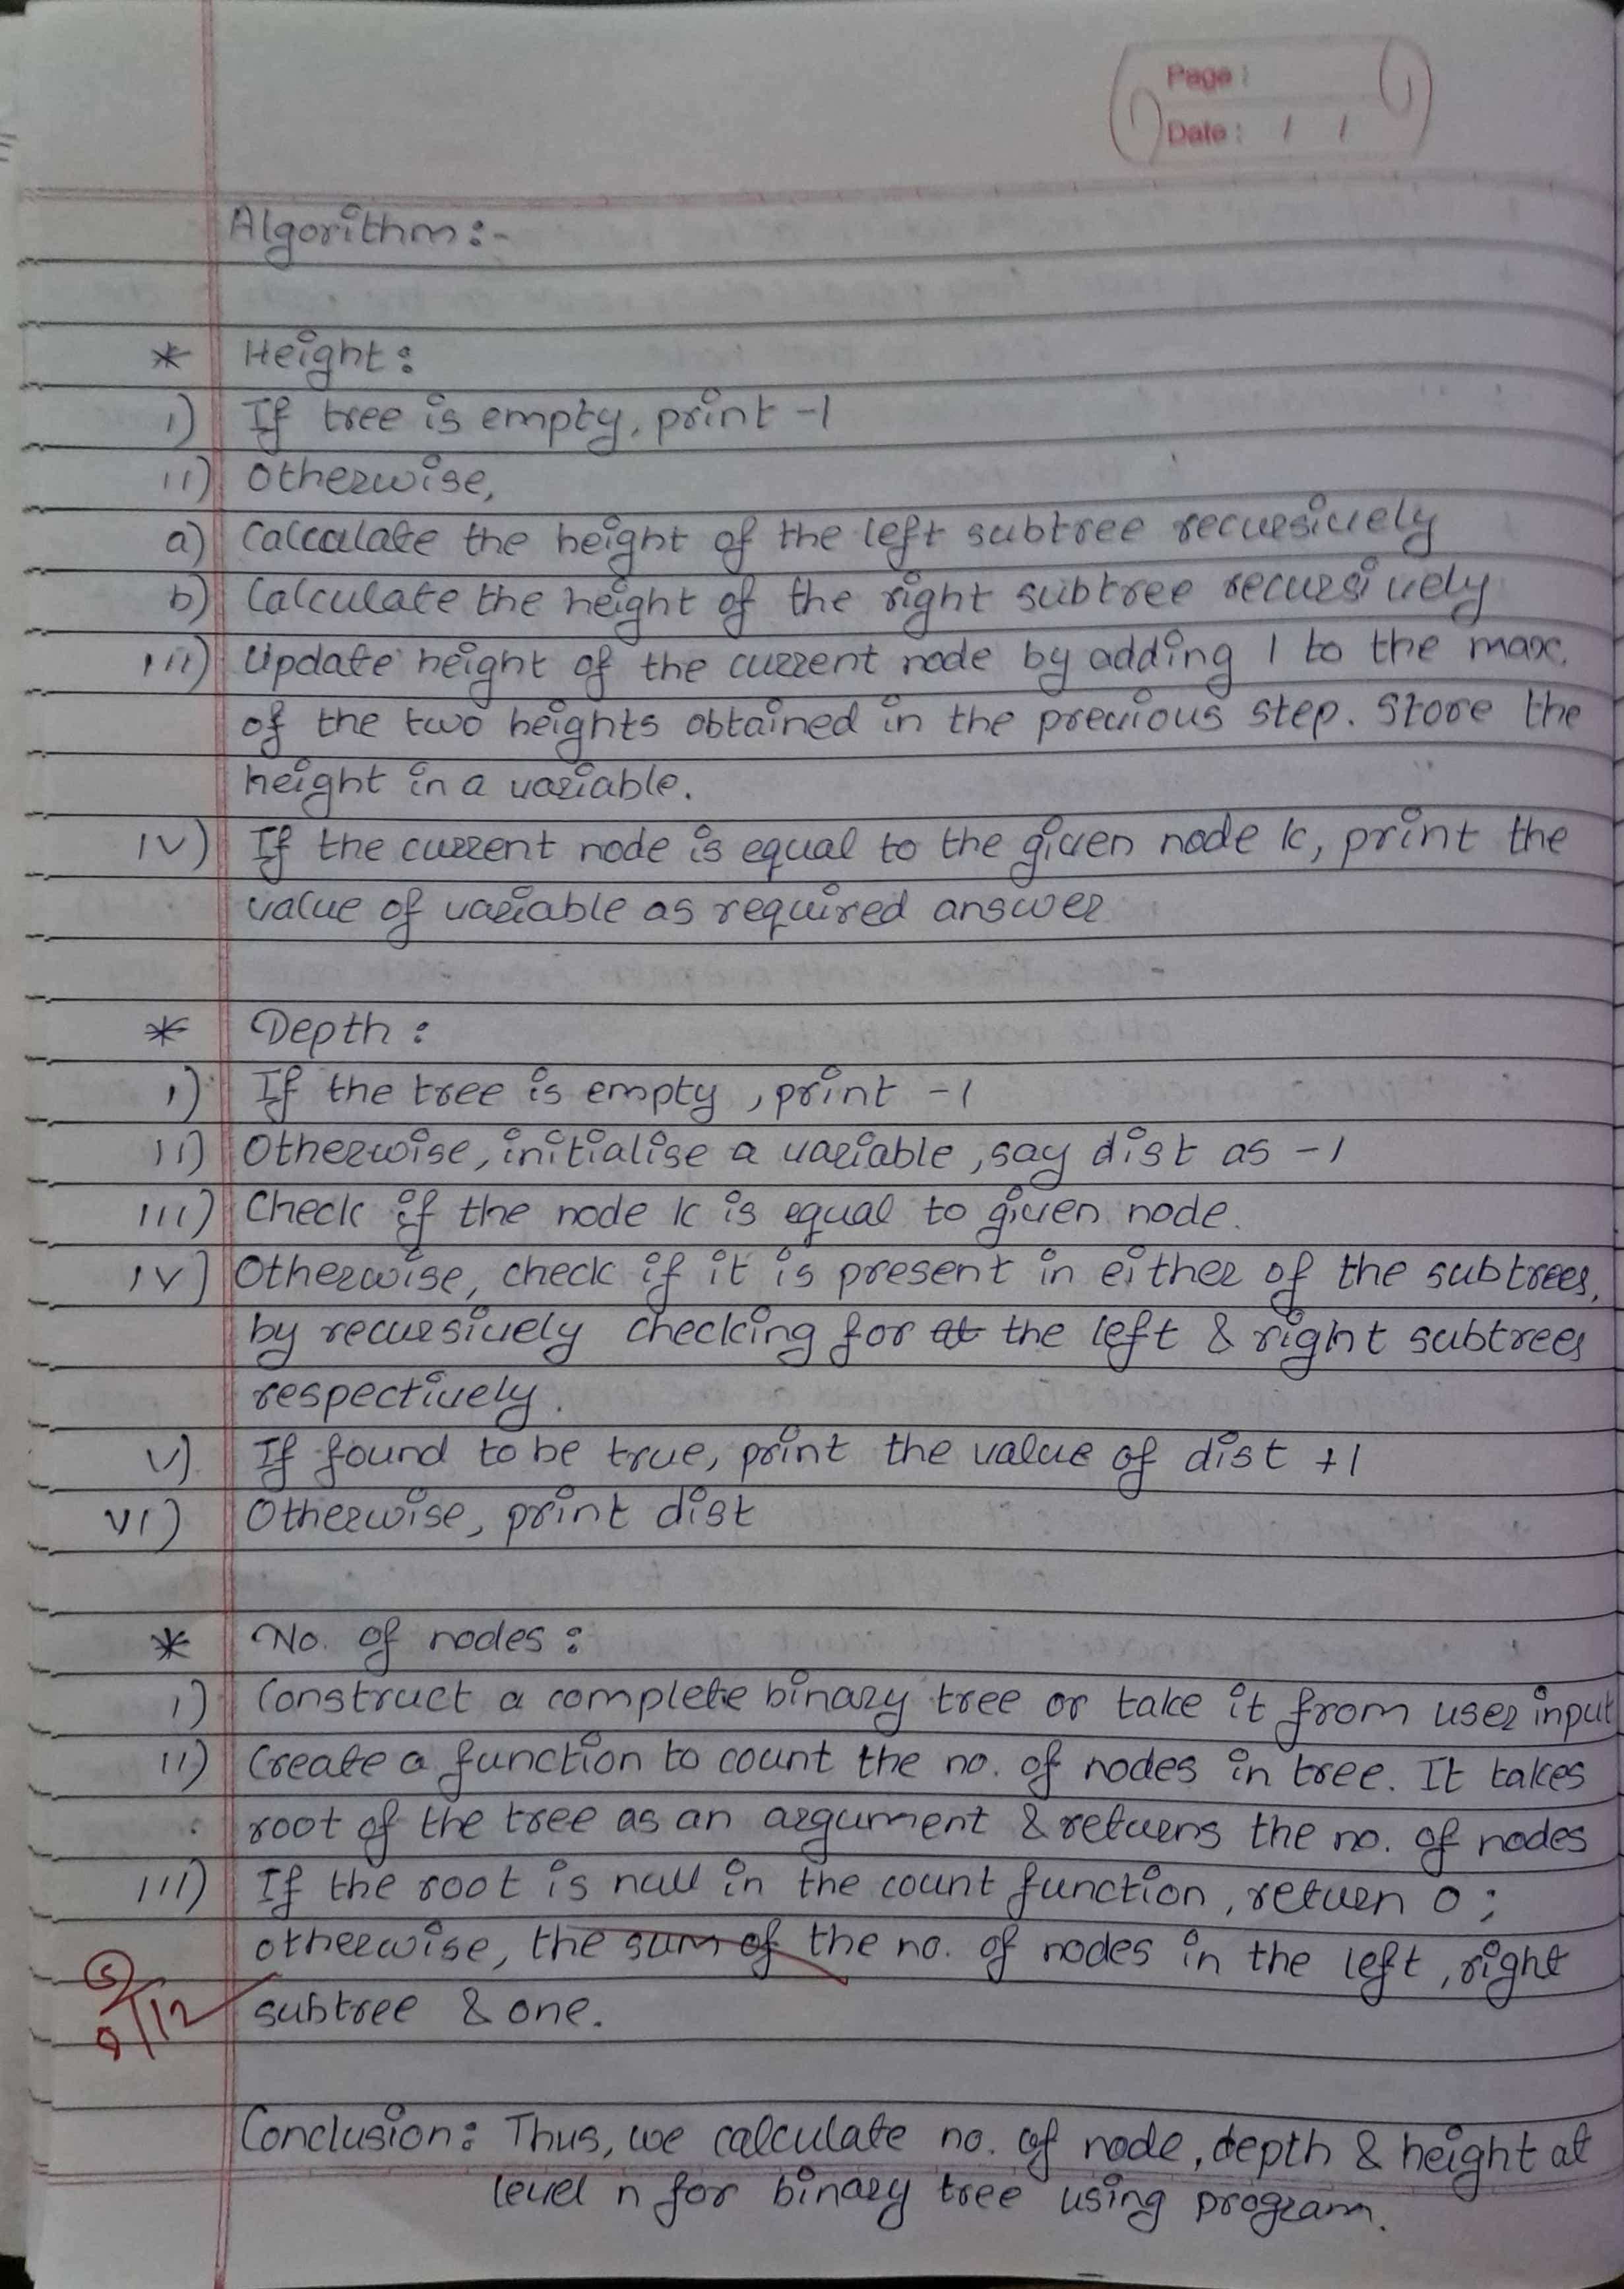 Page :
Date : / /
Algorithm :-
* Height :
i) If tree is empty, print -1
ii) Otherwise,
a) Calcalate the height of the left subtree recursively
b) Calculate the height of the right subtree recursively
iii) Update height of the current node by adding 1 to the max.
of the two heights obtained in the previous step. Store the
height in a variable.
iv) If the current node is equal to the given node k, print the
value of variable as required answer
* Depth :
i) If the tree is empty, print -1
ii) Otherwise, initialise a variable, say dist as -1
iii) Check if the node k is equal to given node.
iv) Otherwise, check if it is present in either of the subtrees,
by recursively checking for the left & right subtrees
respectively.
v) If found to be true, print the value of dist +1
vi) Otherwise, print dist
* No. of nodes :
i) Construct a complete binary tree or take it from user input
ii) Create a function to count the no. of nodes in tree. It takes
root of the tree as an argument & returns the no. of nodes
iii) If the root is null in the count function, return 0 ;
otherwise, the sum of the no. of nodes in the left, right
subtree & one.
Conclusion : Thus, we calculate no. of node, depth & height at
level n for binary tree using program.